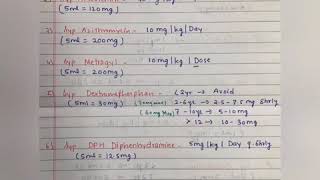 (5ml = 120mg)
3) Syp Azithromycin - 10mg|kg|Day
(5ml = 200mg)
4) Syp Metrogyl - 10mg|kg|Dose
(5ml = 200mg)
5) Syp Dextromethorphan - <2yr → Avoid
(5ml = 30mg) 2-6yr → 2.5-7.5mg 8hrly
7-10yrs → 5-10mg
> 12 → 10-30mg
6) Syp DPH Diphenhydramine - 5mg|kg|Day 6hrly
(5ml = 12.5mg)